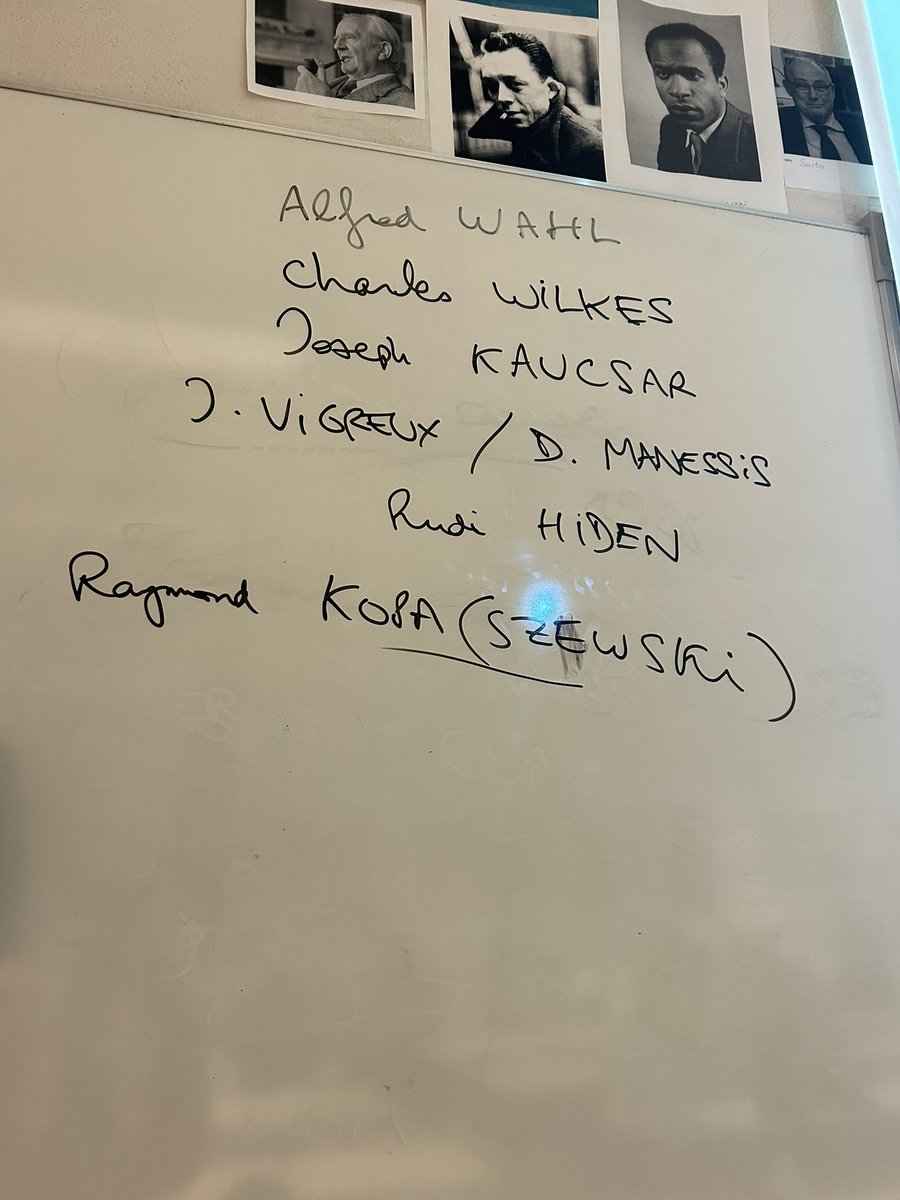 Sartre
Alfred WAHL
Charles WiLKES
Joseph KAUCSAR
J. ViGREUX / D. MANESSiS
Rudi HiDEN
Raymond KOPA (SZEWSKi)